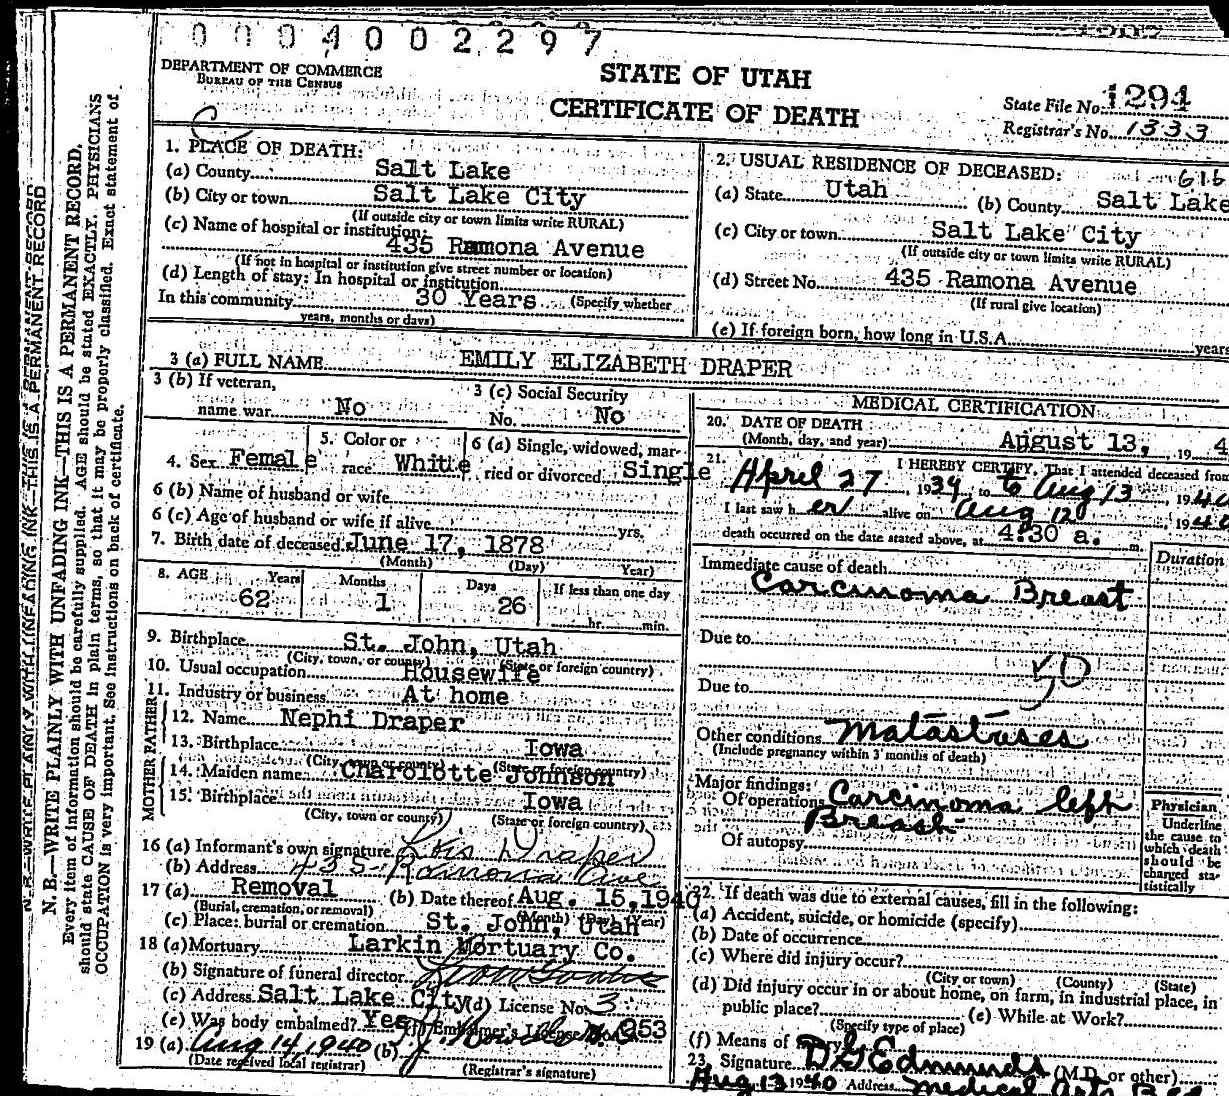 0004002297
DEPARTMENT OF COMMERCE
BUREAU OF THE CENSUS
STATE OF UTAH
CERTIFICATE OF DEATH
State File No. 1294
Registrar's No. 1333
C
1. PLACE OF DEATH:
(a) County Salt Lake
(b) City or town Salt Lake City
(If outside city or town limits write RURAL)
(c) Name of hospital or institution:
435 Ramona Avenue
(If not in hospital or institution give street number or location)
(d) Length of stay: In hospital or institution
In this community 30 Years (Specify whether
years, months or days)
2. USUAL RESIDENCE OF DECEASED: 616
(a) State Utah (b) County Salt Lake
(c) City or town Salt Lake City
(If outside city or town limits write RURAL)
(d) Street No. 435 Ramona Avenue
(If rural give location)
(e) If foreign born, how long in U.S.A. years
3 (a) FULL NAME EMILY ELIZABETH DRAPER
3 (b) If veteran,
name war No
3 (c) Social Security
No. No
4. Sex Female
5. Color or
race White
6 (a) Single, widowed, mar-
ried or divorced Single
6 (b) Name of husband or wife
6 (c) Age of husband or wife if alive yrs.
7. Birth date of deceased June 17, 1878
(Month) (Day) Year)
8. AGE Years Months Days If less than one day
62 1 26 hr. min.
9. Birthplace St. John, Utah
(City, town, or county) (State or foreign country)
10. Usual occupation Housewife
11. Industry or business At home
FATHER
12. Name Nephi Draper
13. Birthplace Iowa
(City, town or county) (State or foreign country)
MOTHER
14. Maiden name Charolotte Johnson
15. Birthplace Iowa
(City, town or county) (State or foreign country)
16 (a) Informant's own signature Draper
(b) Address 435 Ramona Ave
17 (a) Removal (b) Date thereof Aug. 15, 1940
(Burial, cremation, or removal) (Month) (Day) (Year)
(c) Place: burial or cremation St. John, Utah
18 (a) Mortuary Larkin Mortuary Co.
(b) Signature of funeral director
(c) Address Salt Lake City (d) License No. 3
(e) Was body embalmed? Yes (f) Embalmer's License No. 353
19 (a) Aug 14, 1940 (b)
(Date received local registrar) (Registrar's signature)
MEDICAL CERTIFICATION
20. DATE OF DEATH
(Month, day, and year) August 13, 19 4
21. I HEREBY CERTIFY, That I attended deceased from
April 27 1939 to to Aug 13 19 40
I last saw h er alive on Aug 12 19 40
death occurred on the date stated above, at 4:30 a. m.
Immediate cause of death Duration
Carcinoma Breast
Due to
50
Due to
Other conditions Matastases
(Include pregnancy within 3 months of death)
Major findings:
Of operations Carcinoma left
Breast
Of autopsy
Physician
Underline
the cause to
which death
should be
charged sta-
tistically
22. If death was due to external causes, fill in the following:
(a) Accident, suicide, or homicide (specify)
(b) Date of occurrence
(c) Where did injury occur?
(City or town) (County) (State)
(d) Did injury occur in or about home, on farm, in industrial place, in
public place? (e) While at Work?
(Specify type of place)
(f) Means of injury
23. Signature D G Edmunds (M.D. or other)
Aug 13 1940 Address Medical Arts Bldg
N. B.—WRITE PLAINLY WITH UNFADING INK—THIS IS A PERMANENT RECORD.
Every item of information should be carefully supplied. AGE should be stated EXACTLY. PHYSICIANS
should state CAUSE OF DEATH in plain terms, so that it may be properly classified. Exact statement of
OCCUPATION is very important. See instructions on back of certificate.